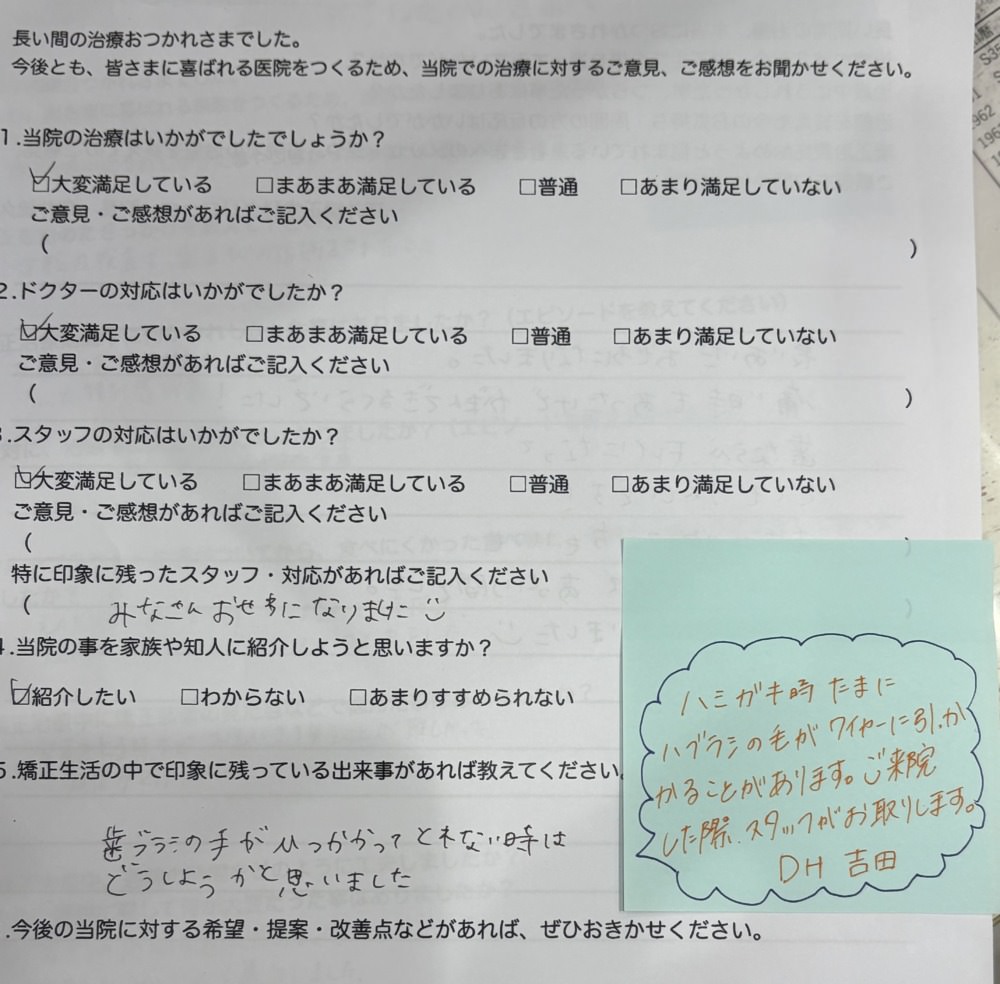 長い間の治療おつかれさまでした。
今後とも、皆さまに喜ばれる医院をつくるため、当院での治療に対するご意見、ご感想をお聞かせください。
1.当院の治療はいかがでしたでしょうか？
☑大変満足している　□まあまあ満足している　□普通　□あまり満足していない
ご意見・ご感想があればご記入ください
(　)
2.ドクターの対応はいかがでしたか？
☑大変満足している　□まあまあ満足している　□普通　□あまり満足していない
ご意見・ご感想があればご記入ください
(　)
3.スタッフの対応はいかがでしたか？
☑大変満足している　□まあまあ満足している　□普通　□あまり満足していない
ご意見・ご感想があればご記入ください
(　)
特に印象に残ったスタッフ・対応があればご記入ください
(　みなさんおせわになりました　)
4.当院の事を家族や知人に紹介しようと思いますか？
☑紹介したい　□わからない　□あまりすすめられない
5.矯正生活の中で印象に残っている出来事があれば教えてください
歯ブラシの手がひっかかってとれない時は
どうしようかと思いました
.今後の当院に対する希望・提案・改善点などがあれば、ぜひおきかせください。
ハミガキ時 たまに
ハブラシの毛が ワイヤーに引っか
かることがあります。ご来院
した際、スタッフがお取りします。
DH 吉田